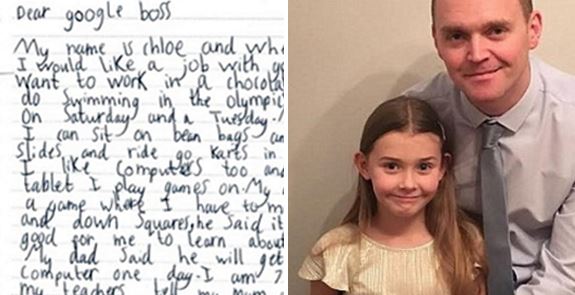 Dear google boss
My name is chloe and
I would like a job with
want to work in a
do swimming in the
On Saturday and a Tuesday.
I can sit on bean bags
slides and ride go karts in
I like computers too and
tablet I play games on. My
a game where I have to
and down Squares, he said it
good for me to learn about
My dad said he will get
Computer one day. I am 7
my teachers tell my mum